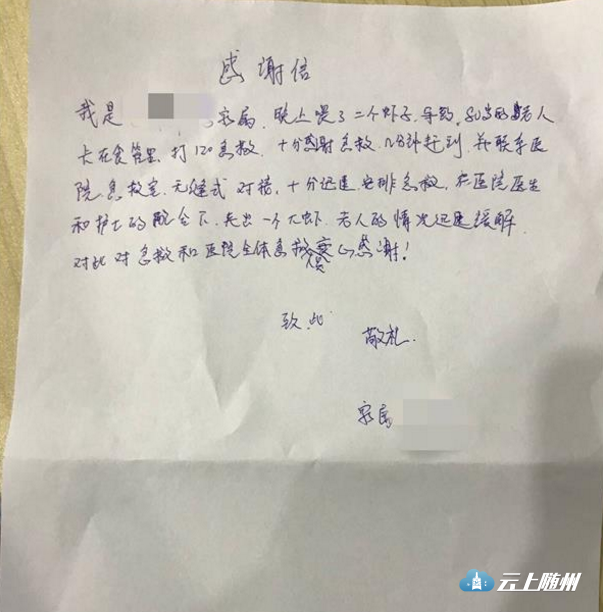 感谢信
我是 家属，晚上喂了二个虾子，导致，80岁的老人
卡在食管里，打120急救，十分感谢急救，几分钟赶到，并联系医
院急救室，无缝式对接，十分迅速安排急救，在医院医生
和护士的配合下，夹出一个大虾，老人的情况迅速缓解，
对此对急救和医院全体急救人员心感谢！
致此
敬礼
家属
云上随州